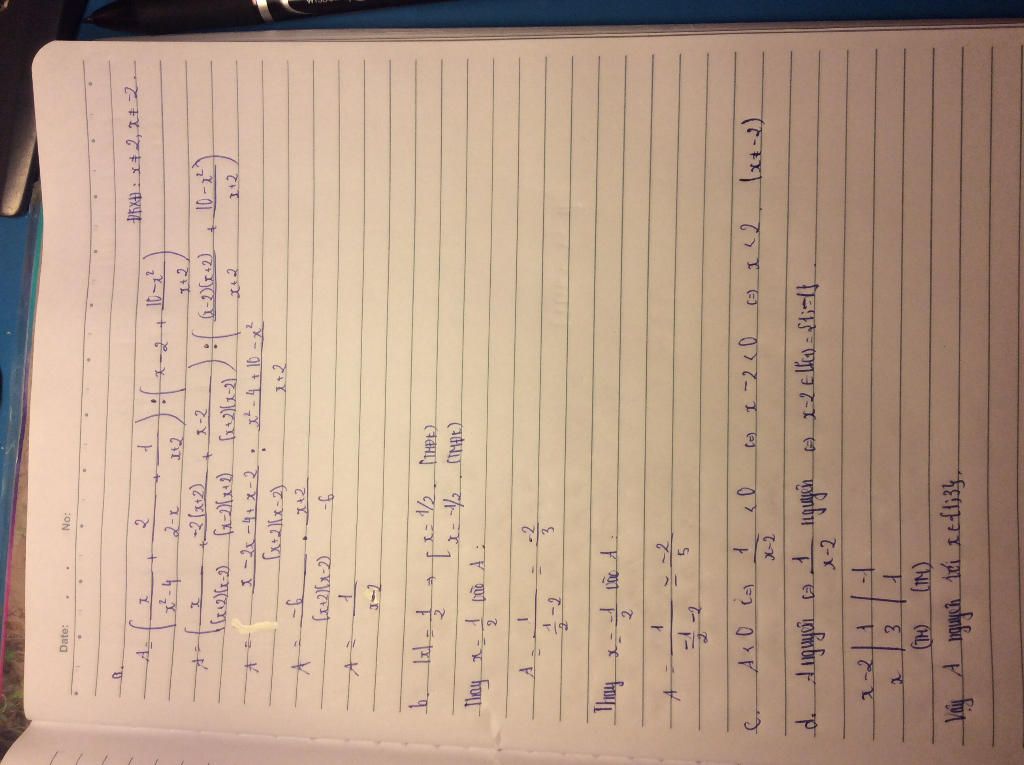 Date: No:
a. ĐKXĐ: x ≠ 2, x ≠ -2.
A = (x/(x²-4) + 2/(2-x) + 1/(x+2)) : (x-2 + (10-x²)/(x+2))
A = (x/((x+2)(x-2)) + -2(x+2)/((x-2)(x+2)) + (x-2)/((x+2)(x-2))) : ((x-2)(x+2)/(x+2) + (10-x²)/(x+2))
A = (x-2x-4+x-2)/((x+2)(x-2)) : (x²-4+10-x²)/(x+2)
A = -6/((x+2)(x-2)) . (x+2)/-6
A = 1/(x-2)
b. |x| = 1/2 ⇒ [x = 1/2. (TMĐK)
x = -1/2. (TMĐK)
Thay x = 1/2 vào A:
A = 1/(1/2 - 2) = -2/3
Thay x = -1/2 vào A:
A = 1/(-1/2 - 2) = -2/5
c. A < 0 (=) 1/(x-2) < 0 (=) x-2 < 0 (=) x < 2. (x ≠ -2)
d. A nguyên (=) 1/(x-2) nguyên (=) x-2 ∈ Ư(1) = {1;-1}.
x-2 | 1 | -1
x | 3 | 1
(TM) (TM)
Vậy A nguyên với x ∈ {1;3}.